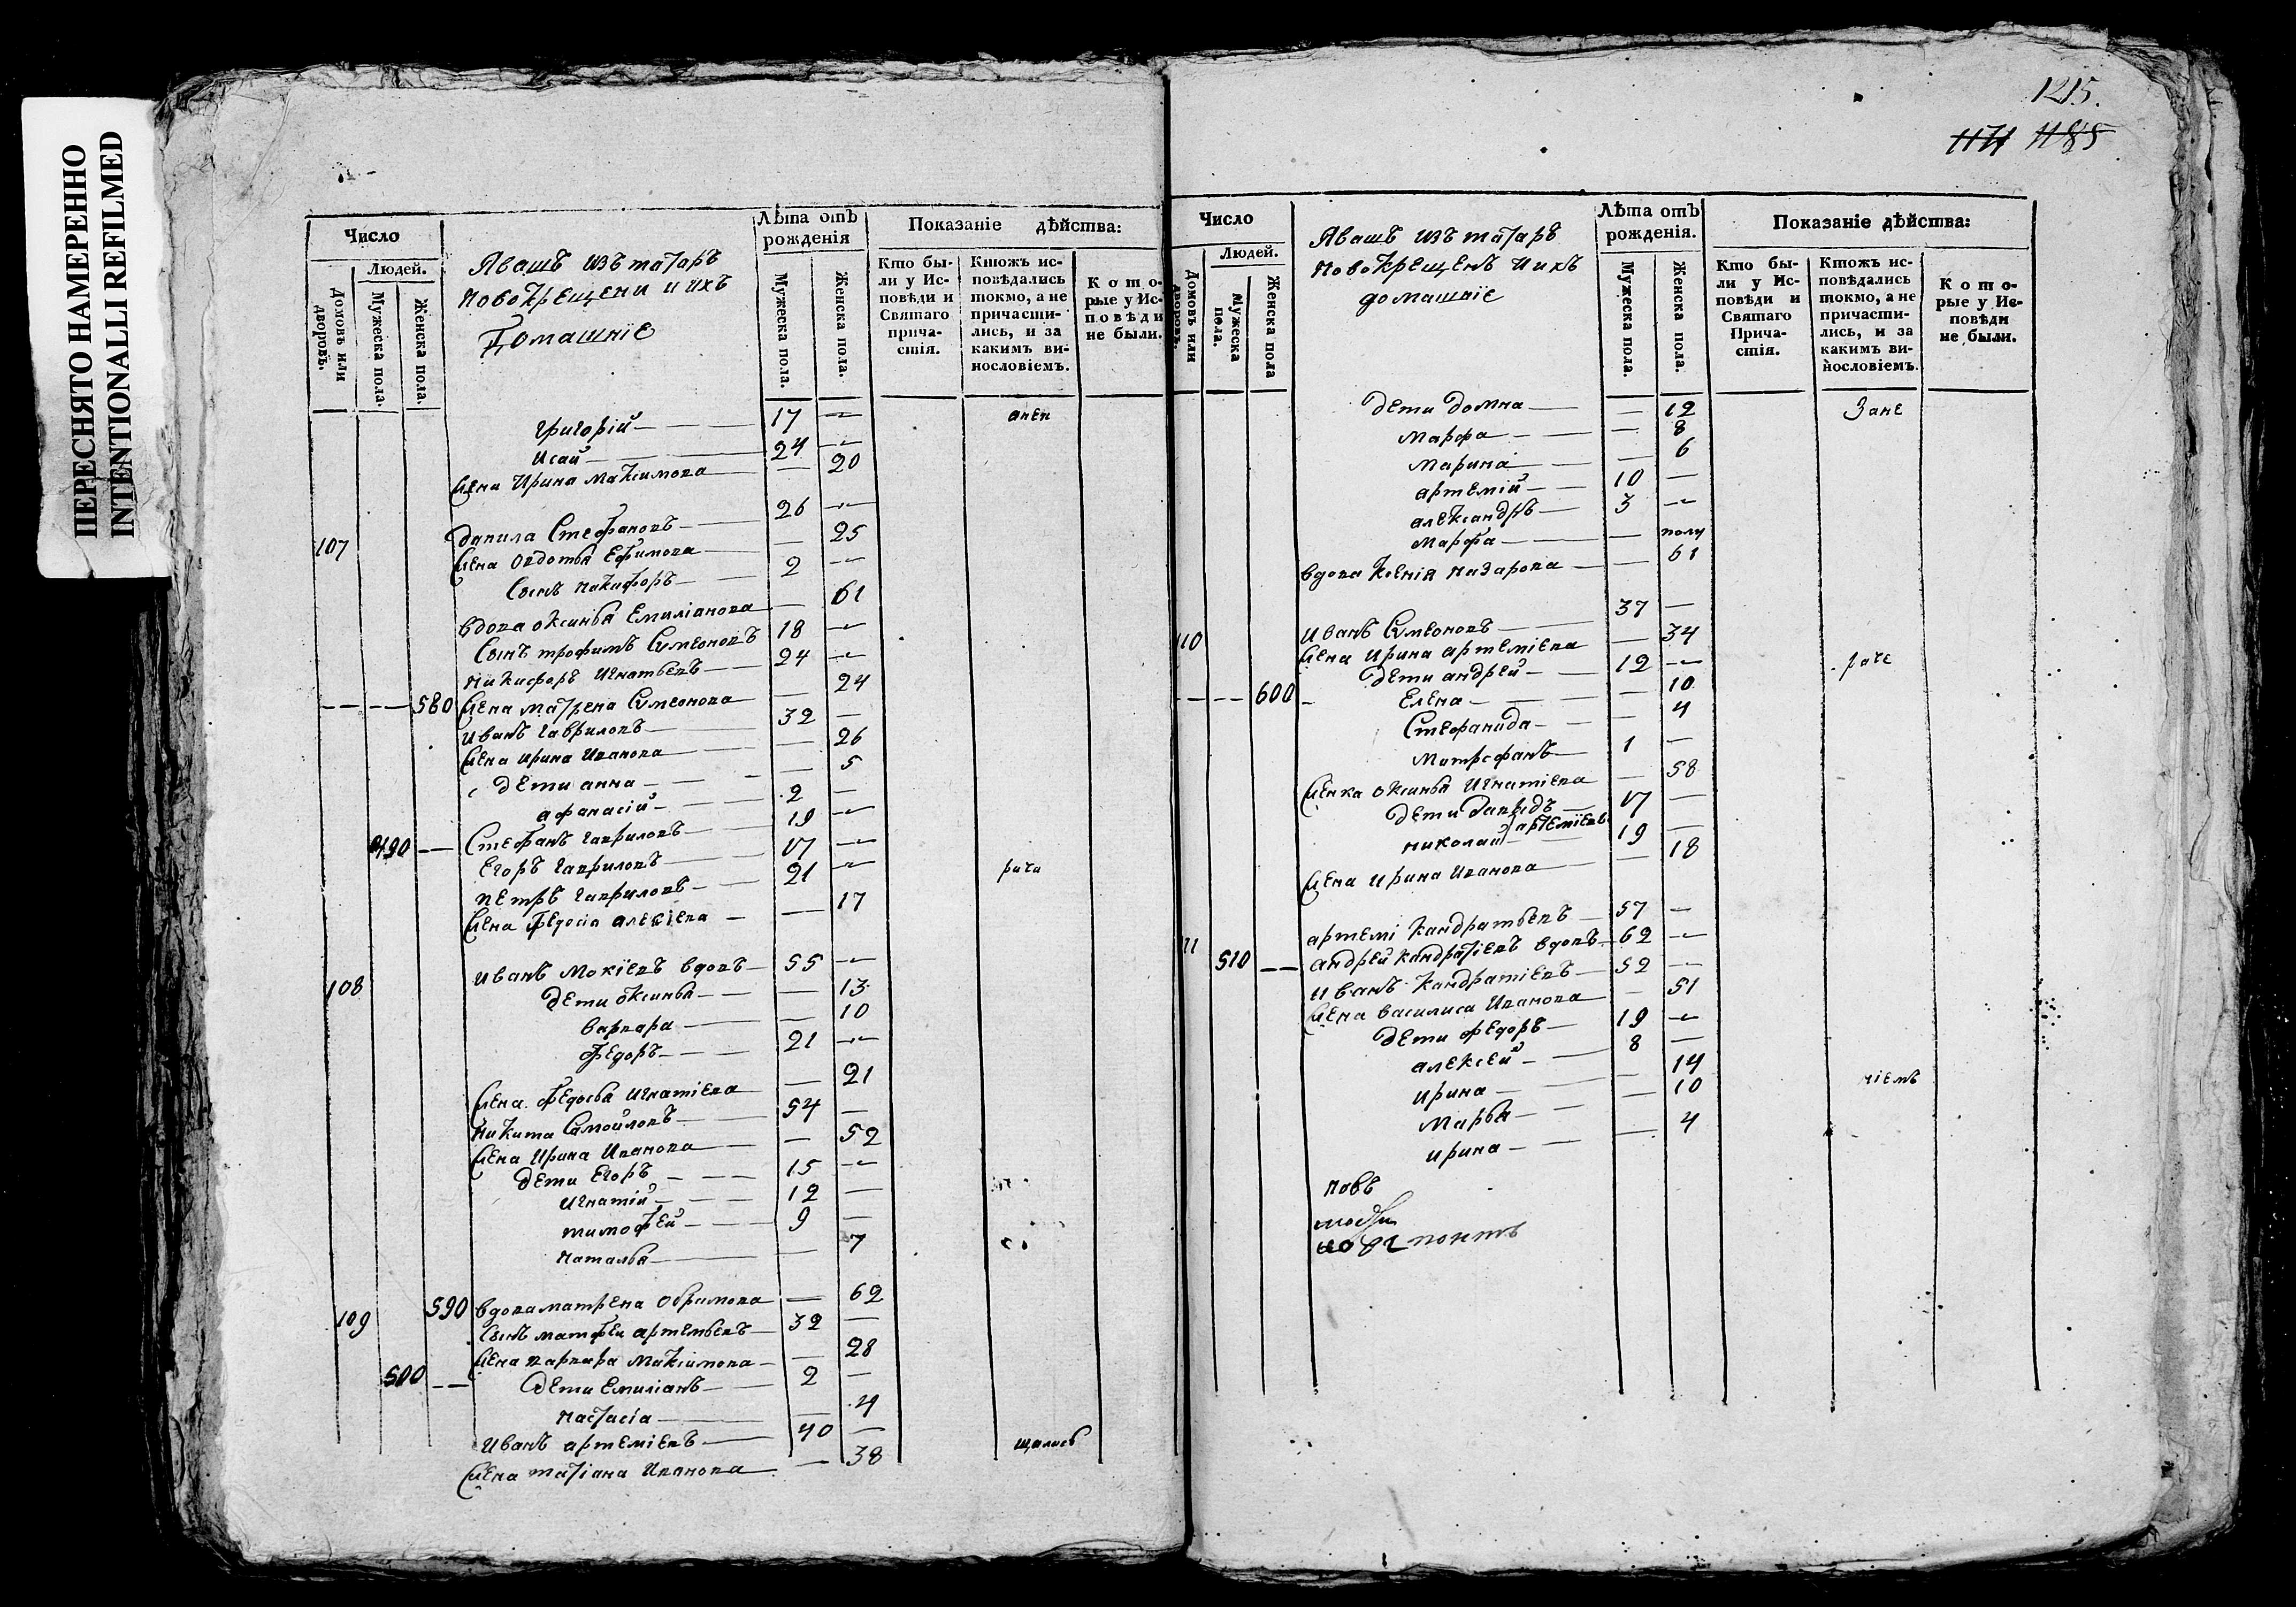 ПЕРЕСНЯТО НАМЕРЕННО
INTENTIONALLI REFILMED
1215.
1171 1185
Число
Людей.
Домовъ или дворовъ.
Мужеска пола.
Женска пола.
Явашъ изъ татаръ
новокрещени и ихъ
Домашніе
Лѣта отъ рожденія
Мужеска пола.
Женска пола.
Показаніе дѣйства:
Кто были у Исповѣди и Святаго причастія.
Ктожъ исповѣдались токмо, а не причастились, и за какимъ винословіемъ.
Которые у Исповѣди не были.
григорій 17 —
исай 24 —
жена Ирина Максимова — 20
107 данила Стефановъ 26 —
жена овдотья Ефимова — 25
сынъ никифоръ 2 —
вдова оксинья Емиліанова — 61
сынъ трофимъ Симеоновъ 18 —
никифоръ игнатьевъ 24 —
— — 580 жена матрена Симеонова — 24
иванъ гавриловъ 32 —
жена ирина иванова — 26
дети анна — 5
афанасій 2 —
490 — Стефанъ гавриловъ 19 —
Егоръ гавриловъ 17 —
петръ гавриловъ 21 —
жена федосіа алексіева — 17
108 иванъ Мокіевъ вдовъ 55 —
дети оксинья — 13
варвара — 10
федоръ 21 —
жена федосья игнатіева — 21
никита Самойловъ 54 —
жена Ирина Иванова — 52
дети Егоръ 15 —
игнатій 12 —
тимофей 9 —
наталья — 7
109 590 вдова матрена обрамова — 62
сынъ матфеи артемьевъ 32 —
жена варвара Максимова — 28
500 — дети Емиліанъ 2 —
настасіа — 4
иванъ артеміевъ 40 —
жена татіана иванова — 38
рачи
щались
Число
Людей.
Домовъ или дворовъ.
Мужеска пола.
Женска пола
Явашъ изъ татаръ
новокрещенъ и ихъ
домашніе
Лѣта отъ рожденія.
Мужеска пола.
Женска пола.
Показаніе дѣйства:
Кто были у Исповѣди и Святаго Причастія.
Ктожъ исповѣдались токмо, а не причастились, и за какимъ винословіемъ.
Которые у Исповѣди не были.
дети домна — 12 Зане
марфа — 8
марина — 6
артемій 10 —
александръ 3 —
марфа — полу
вдова Ксенія назарова — 61
110 иванъ Симеоновъ 37 —
жена ирина артеміева — 34
дети андрей 12 — раче
— — 600 Елена — 10
Стефанида — 4
Митрофанъ 1 —
женка оксинья игнатіева — 58
дети давидъ 17 —
николай артеміевы 19 —
жена ирина иванова — 18
111 артемі кандратьевъ 57 —
510 — андрей кандратіевъ вдовъ 62 —
иванъ кандратіевъ 52 —
жена василиса иванова — 51
дети федоръ 19 —
алексей 8 —
ирина — 14 ніемъ
марья — 10
ирина — 4